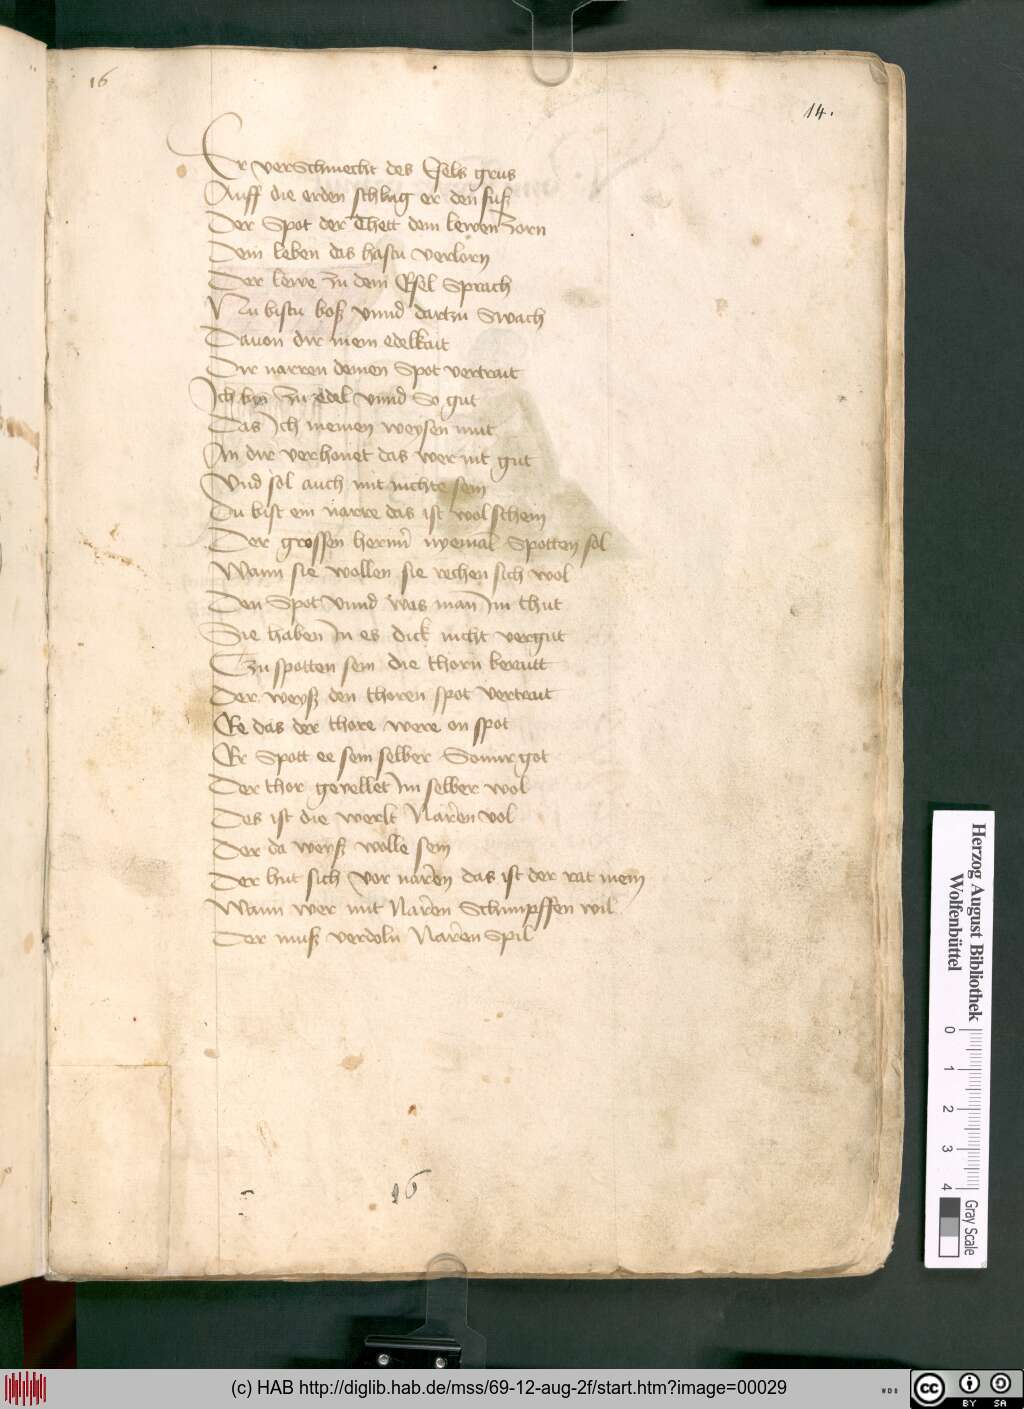 16
14.
Er verschmecht des Esels grus
Auff die erden schlug er den fusz
Der Spot der Thett dem lewen Zorn
Dein leben das hastu verlorn
Der lewe zu dem Esel Sprach
Nu bistu bosz vnnd dartzu Swach
Dauon dir mein edelkait
Dir narren deinen Spot vertrait
Ich byn zu edel vnnd So gut
Das Ich meinen weysen mut
An dir verhonet das wer nit gut
Vnd sol auch mit nichte sein
Du bist ein narre das ist wol schein
Der grossen herrn nyemal Spotten sol
Wann sie wollen sie rechen sich wol
Den Spot vnnd was man Im thut
Sie haben In es dick nicht vergut
Tzu spotten sein die thorn beraitt
Der weysz den thoren spot vertrait
Ee das der thore were on spot
Er Spott ee sein selber Sommir got
Der thor gevellet Im selber wol
Des ist die werlt Naren vol
Der da weysz wolle sein
Der hut sich vor naren das ist der rat mein
Wann wer mit Naren Schimpffen wil
Der musz verdoln Naren Spil
16
Herzog August Bibliothek
Wolfenbüttel
0 1 2 3 4
Gray Scale
(c) HAB http://diglib.hab.de/mss/69-12-aug-2f/start.htm?image=00029
WDB
cc BY SA